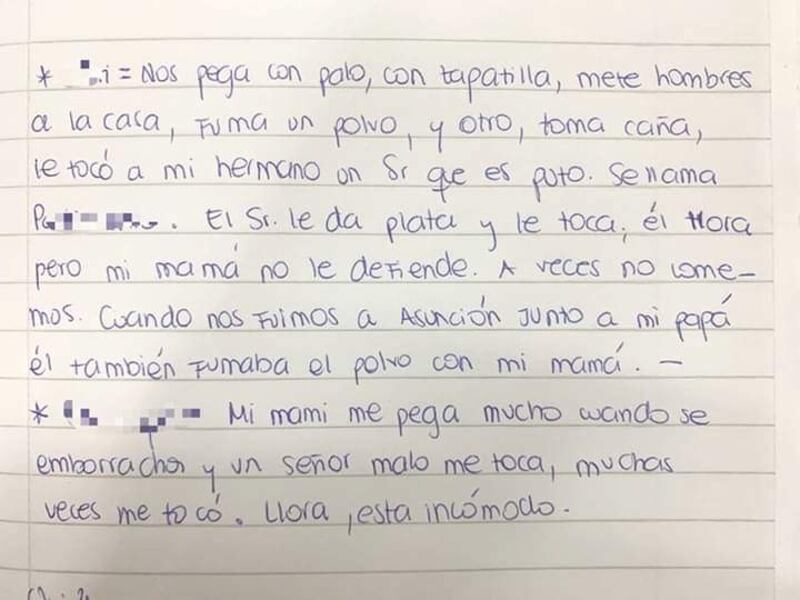 * .i = Nos pega con palo, con tapatilla, mete hombres
a la casa, Fuma un polvo, y otro, toma caña,
le tocó a mi hermano un Sr que es puto. Se llama
P. El Sr. le da plata y le toca, él llora
pero mi mamá no le defiende. A veces no come-
mos. Cuando nos fuimos a Asunción junto a mi papá
él también fumaba el polvo con mi mamá. —
* Mi mami me pega mucho cuando se
emborracha y un señor malo me toca, muchas
veces me tocó. Llora, esta incómodo.